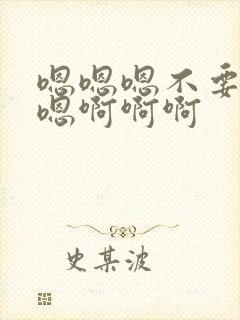 嗯嗯嗯不要
嗯啊啊啊
史某波